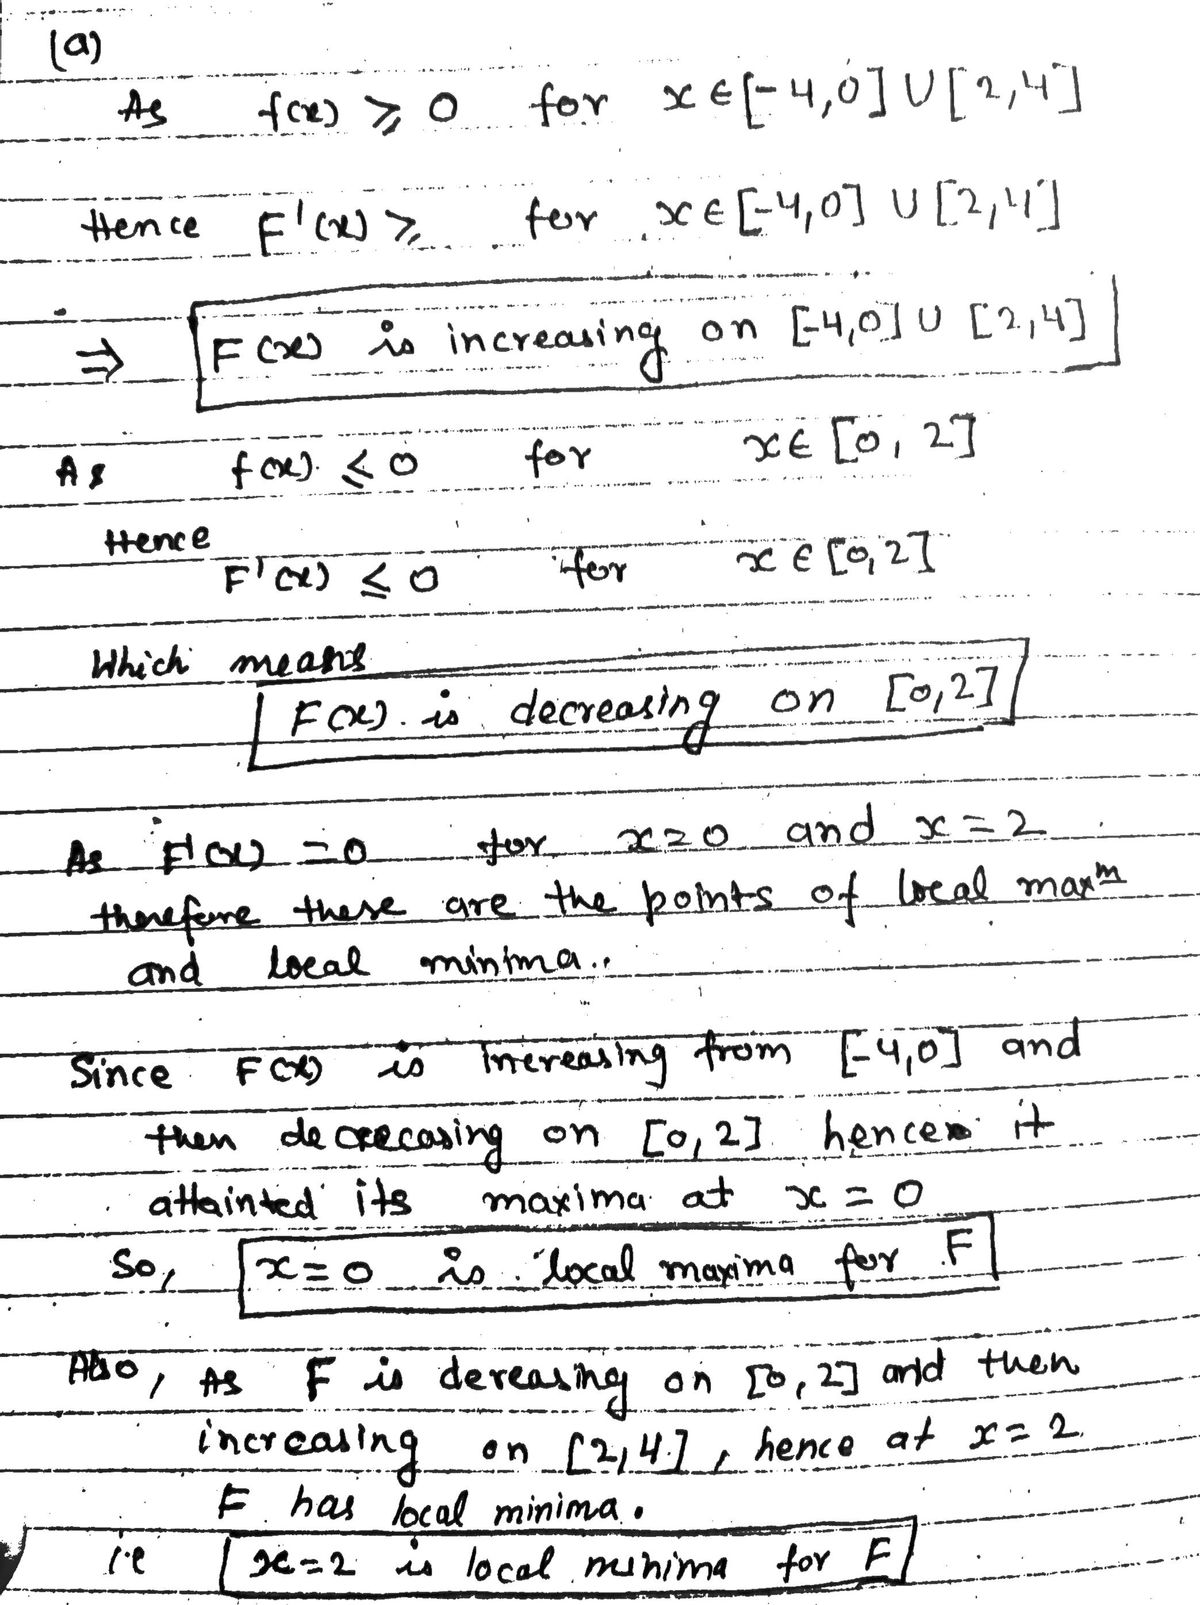 (a)
As f(x) ⩾ 0 for x ∈ [-4,0] ∪ [2,4]
Hence F'(x) ⩾ for x ∈ [-4,0] ∪ [2,4]
⇒ F(x) is increasing on [-4,0] ∪ [2,4]
As f(x) ⩽ 0 for x ∈ [0, 2]
Hence
F'(x) ≤ 0 for x ∈ [0,2]
Which means
F(x) is decreasing on [0,2]
As F'(x) = 0 for x=0 and x = 2
therefore these are the points of local maxm
and local minima.
Since F(x) is increasing from [-4,0] and
then decrecasing on [0,2] hence it
attainted its maxima at x = 0
So, x=0 is local maxima for F
Also, As F is dereasing on [0,2] and then
increasing on [2,4], hence at x = 2
F has local minima.
i.e x=2 is local minima for F